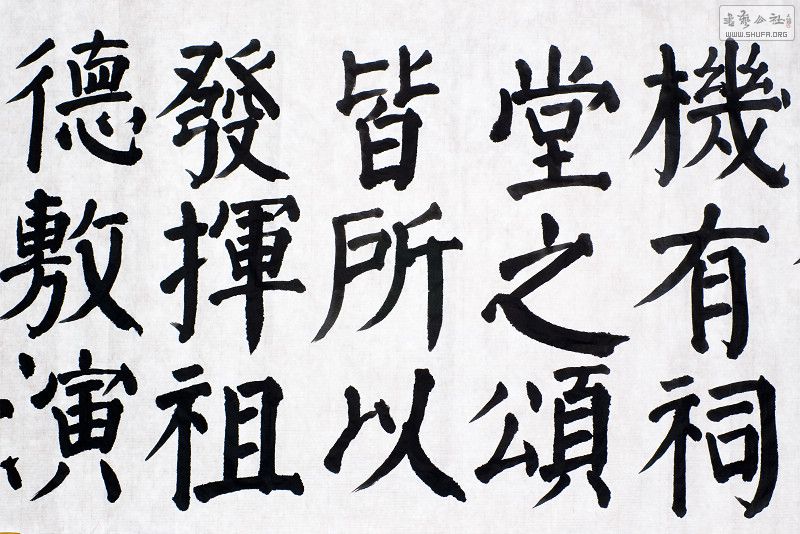 機有祠
堂之頌
皆所以
發揮祖
德敷演
書藝公社
WWW.SHUFA.ORG